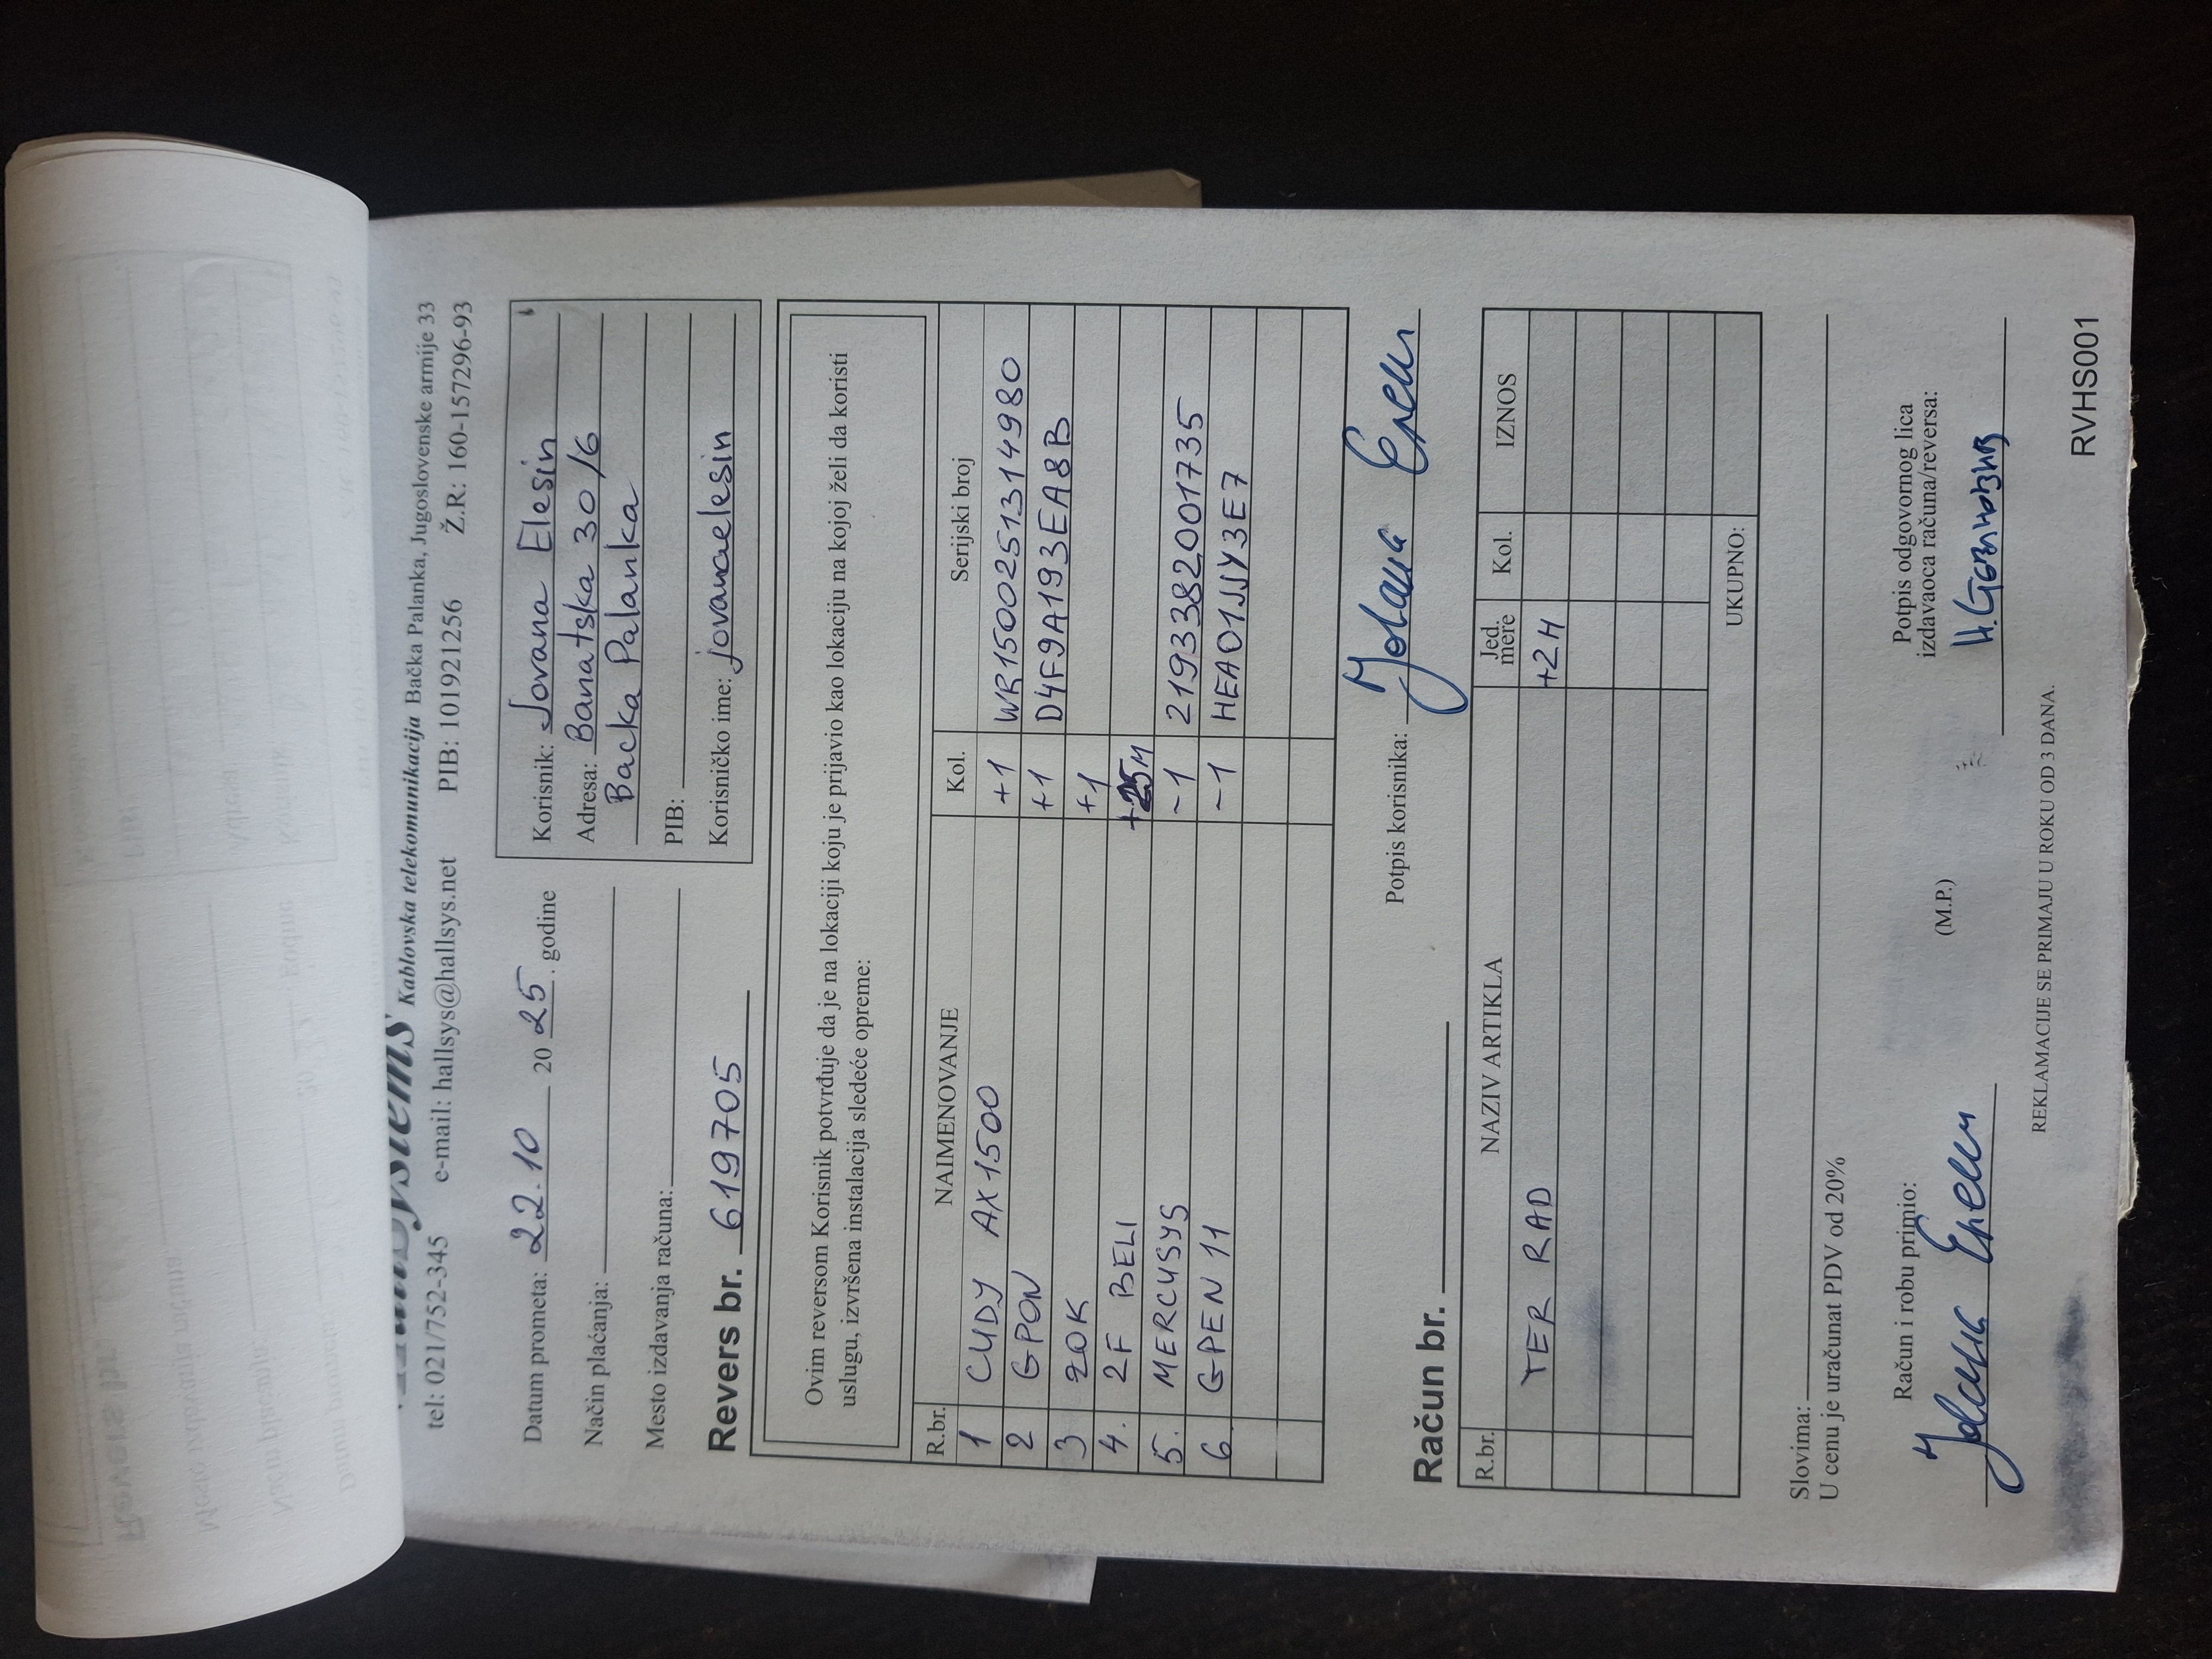 Kablovska telekomunikacija Bačka Palanka, Jugoslovenske armije 33
tel: 021/752-345 e-mail: hallsys@hallsys.net PIB: 101921256 Ž.R: 160-157296-93
Datum prometa: 22.10 20 25. godine
Način plaćanja:
Mesto izdavanja računa:
Korisnik: Jovana Elesin
Adresa: Banatska 30/6
Backa Palanka
PIB:
Korisničko ime: jovanaelesin
Revers br. 619705
Ovim reversom Korisnik potvrđuje da je na lokaciji koju je prijavio kao lokaciju na kojoj želi da koristi
uslugu, izvršena instalacija sledeće opreme:
R.br. NAIMENOVANJE Kol. Serijski broj
1 CUDY AX1500 +1 WR15002513149​80
2 GPON +1 D4F9A193EA8B
3 20K +1
4. 2F BELI +25M
5. MERCUSYS -1 2193382001735
6 GPEN 11 -1 HEA01JJY3E7
Potpis korisnika: Јована Елесин
Račun br.
R.br. NAZIV ARTIKLA Jed. mere Kol. IZNOS
TER RAD +2H
UKUPNO:
Slovima:
U cenu je uračunat PDV od 20%
Račun i robu primio:
Јована Елесин
(M.P.)
Potpis odgovornog lica
izdavaoca računa/reversa:
REKLAMACIJE SE PRIMAJU U ROKU OD 3 DANA.
RVHS001